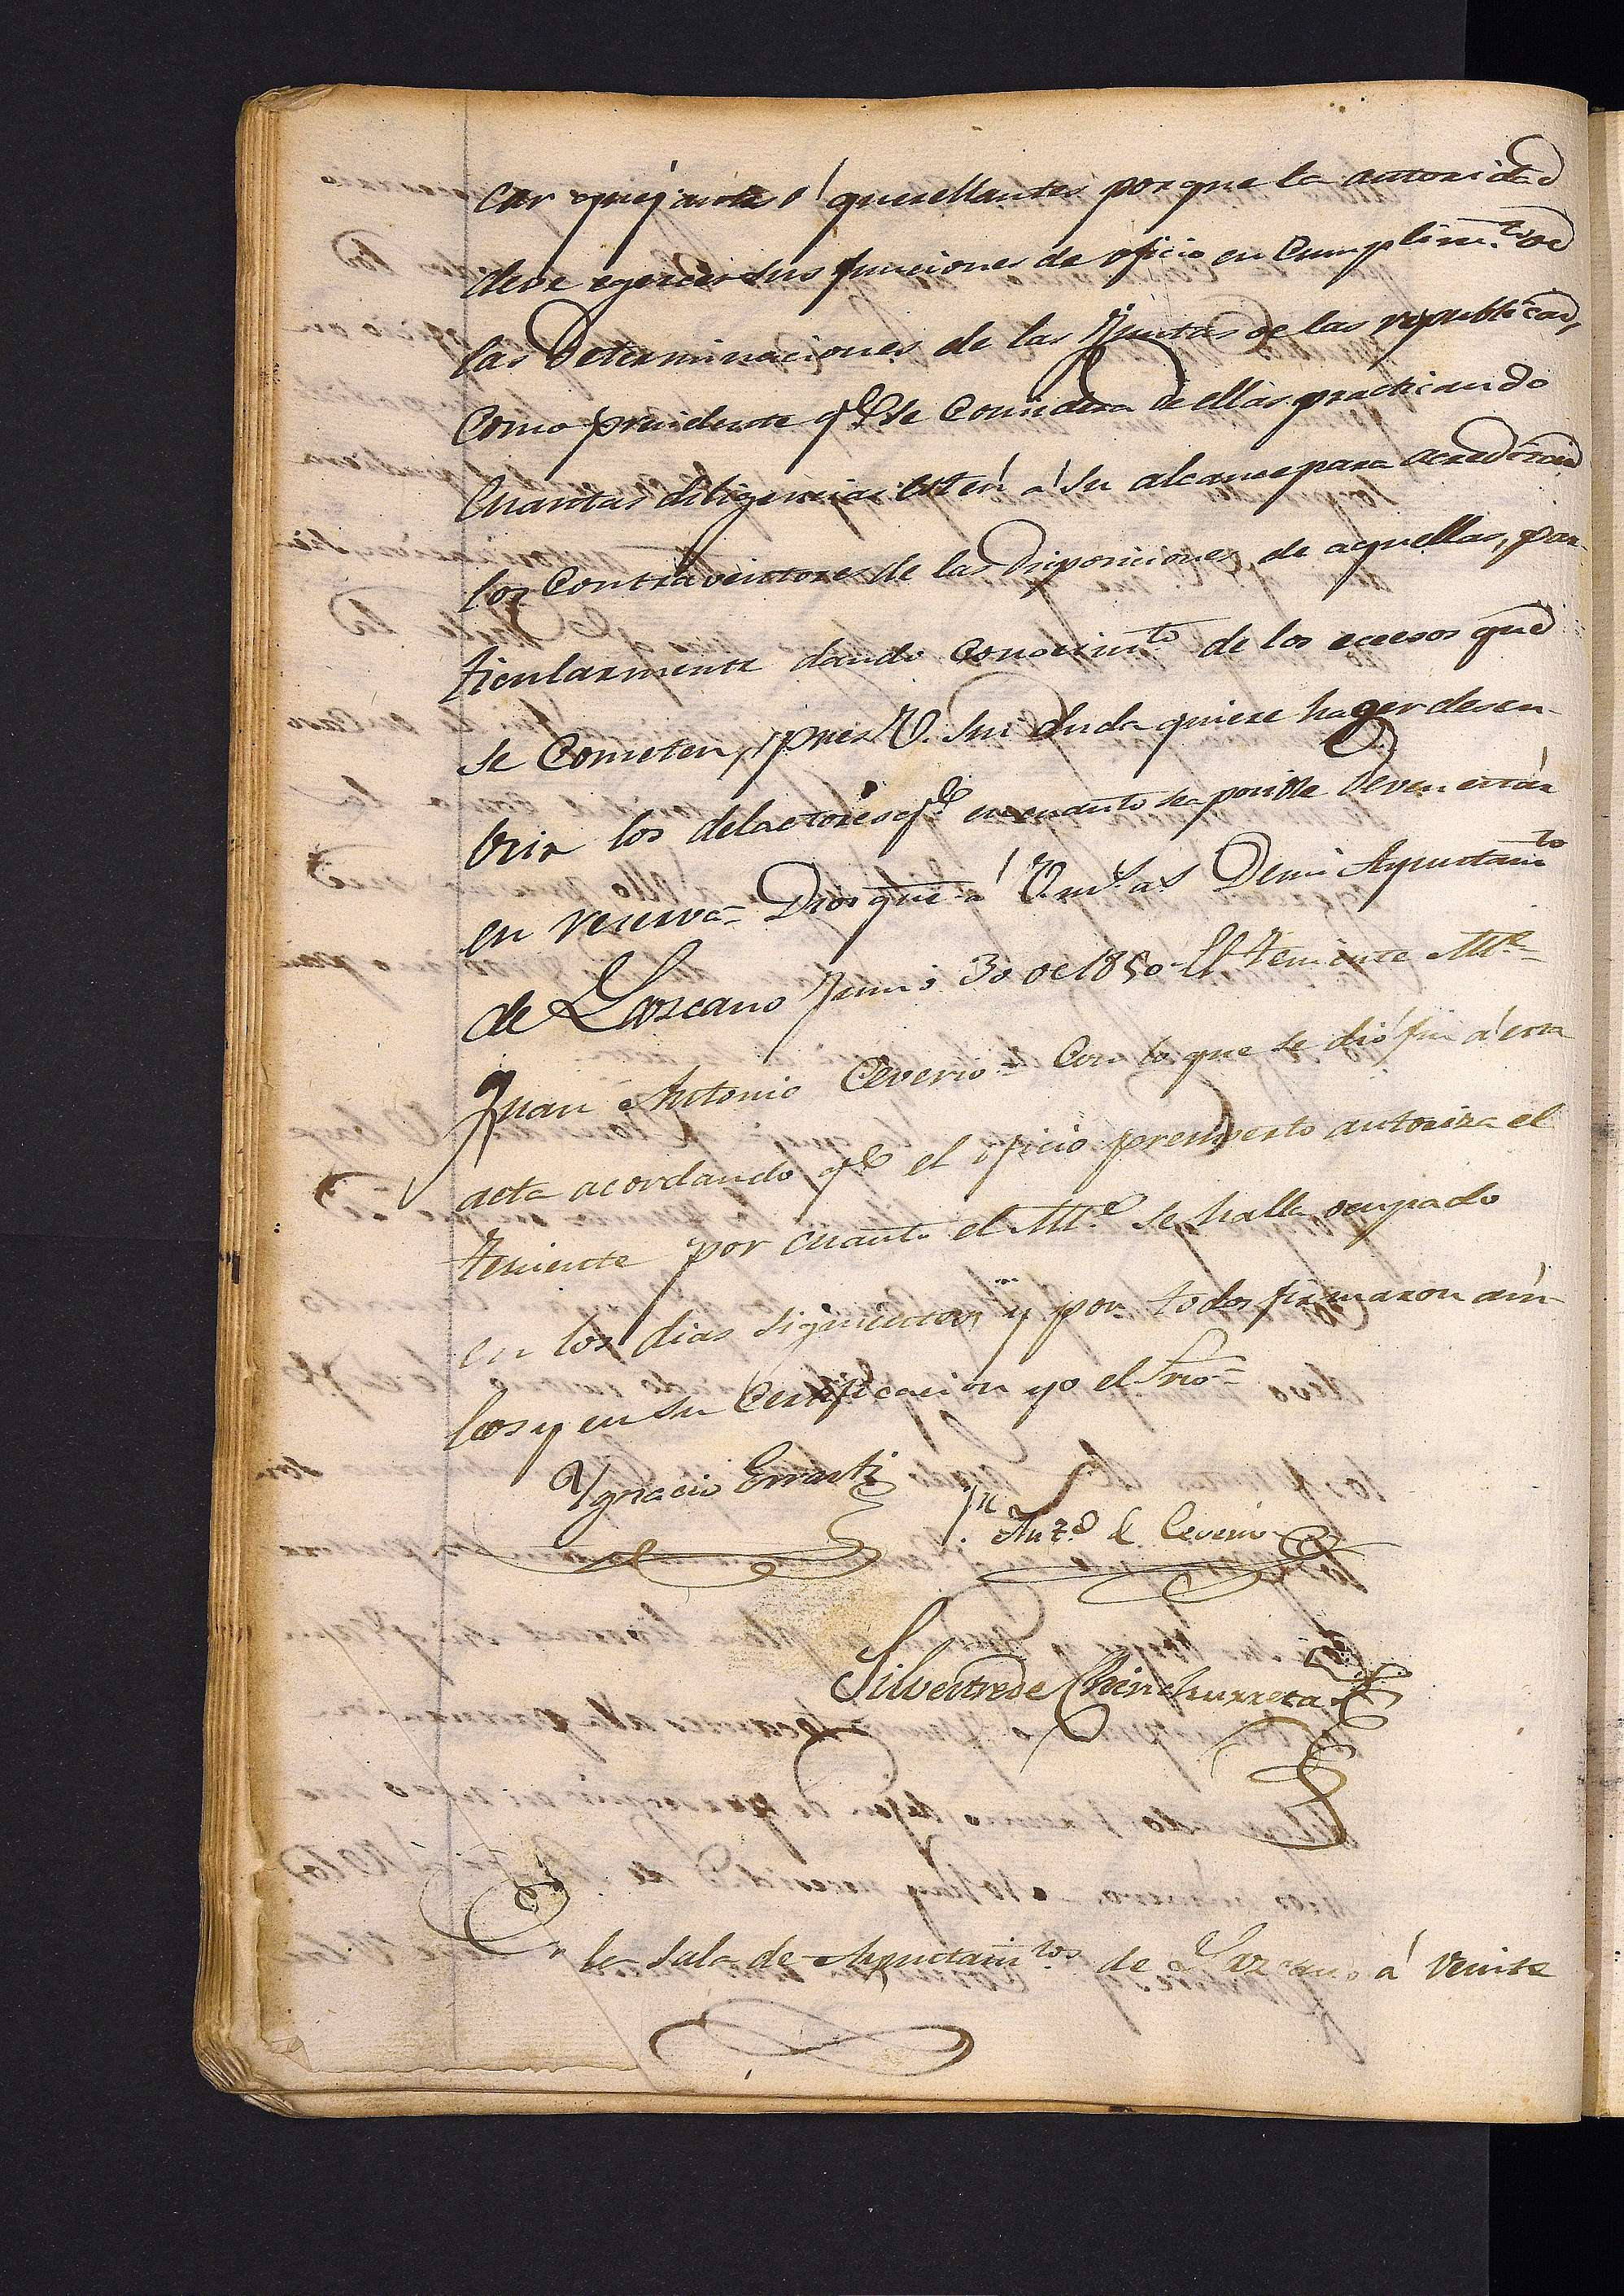 car quejantes ó querellantes porque la autoridad
deve egercer sus funciones de oficio en cumplim.to de
las Determinaciones de las Juntas de las republicas,
Como presidente q.e se Considera de ellas practicando
Cuantas diligencias estén á su alcance para
los Contraventores de las Disposiciones de aquellas, par-
ticularmente dando Conocim.to de los ecesos que
se Cometen, pues V. sin duda quiere hacer descu-
brir los delactores q.e en cuanto sea posible deven estar
en reserva = Dios gue á V. m.s a.s De mi Ayuntam.to
de Lazcano Junio 30 de 1850 = El Teniente All.e =
Juan Antonio Ceverio = Con lo que se dió fin á esta
acta acordando q.e el oficio preinserto autoriza el
Teniente por cuanto el All.e se halla ocupado
en los dias siguientes, y por todos firmaron am-
bos y en su Certificacion yo el Srio =
Ygnacio Errasti
J.n Ant.o de Ceverio
Silvestre de Chinchurreta
En la Sala de Ayuntam.tos de Lazcano á veinte